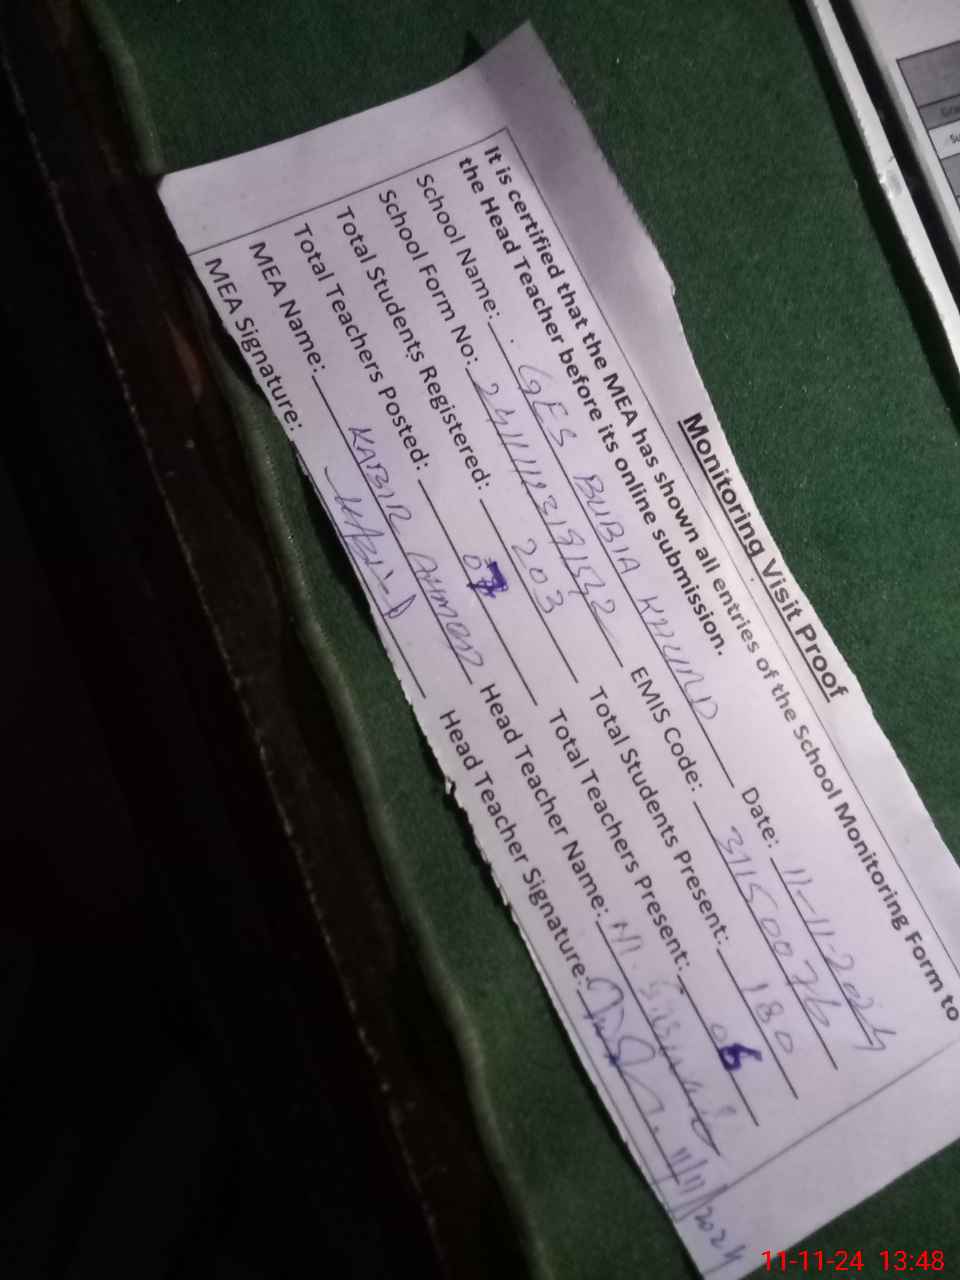 Monitoring Visit Proof
It is certified that the MEA has shown all entries of the School Monitoring Form to
the Head Teacher before its online submission.
School Name: GES BUBIA KHURD Date: 11-11-2024
School Form No: EMIS Code: 31150076
Total Students Registered: 203 Total Students Present: 180
Total Teachers Posted: 07 Total Teachers Present: 06
MEA Name: KABIR AHMED Head Teacher Name: M.
MEA Signature: KABIR Head Teacher Signature: 11/11/2024
11-11-24 13:48